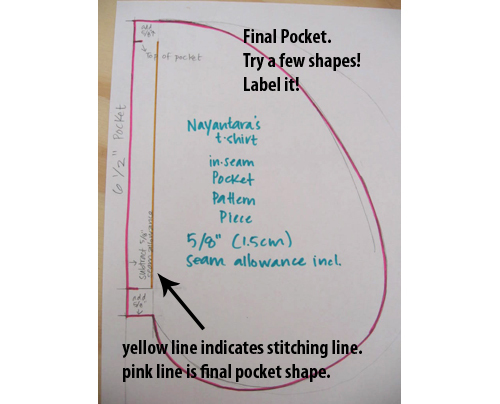 Final Pocket.
Try a few shapes!
Label it!
add
5/8"
Top of pocket
6 1/2" Pocket
Nayantara's
t-shirt
in-seam
Pocket
Pattern
Piece
5/8" (1.5cm)
seam allowance incl.
subtract 5/8"
seam allowance
add
5/8"
yellow line indicates stitching line.
pink line is final pocket shape.